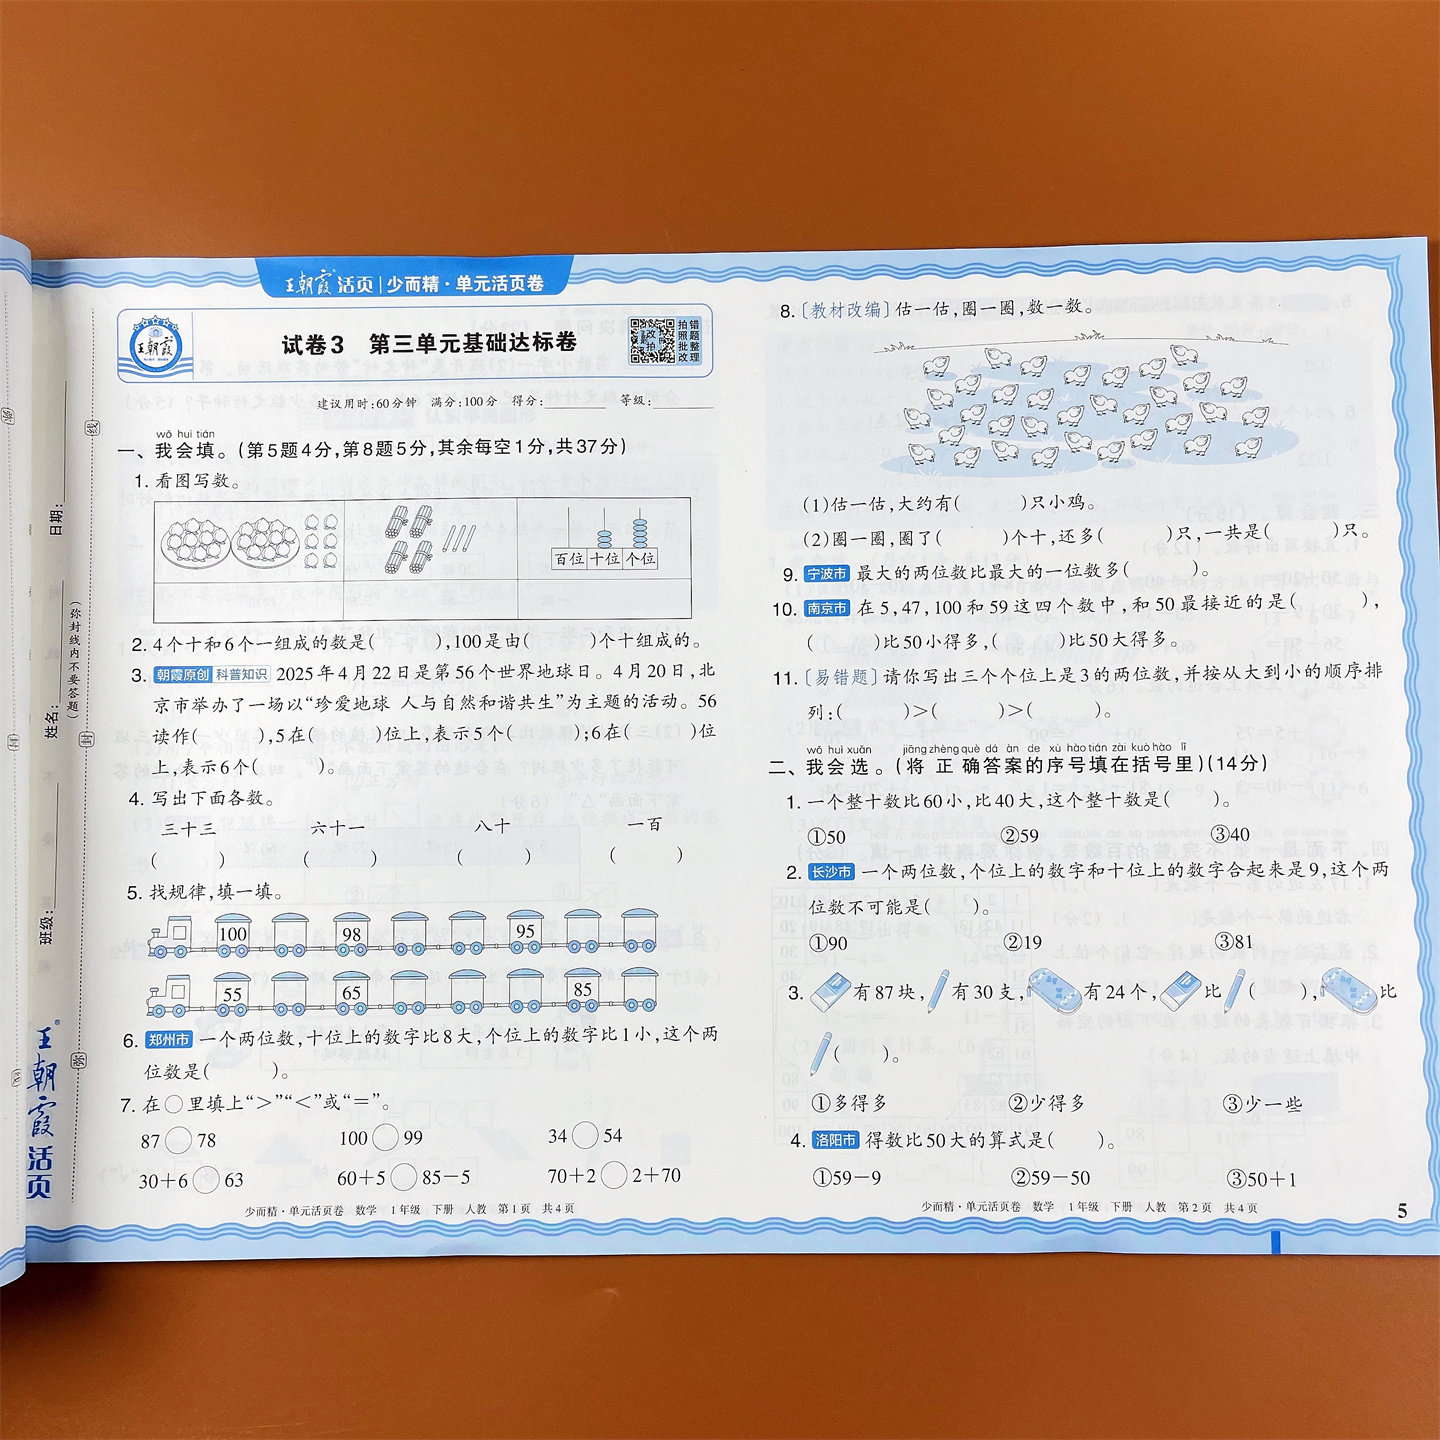 王朝霞®活页|少而精·单元活页卷
王朝霞
试卷3 第三单元基础达标卷
拍照批改
错题整理
建议用时:60分钟 满分:100分 得分:________ 等级:________
wǒ huì tián
一、我会填。(第5题4分,第8题5分,其余每空1分,共37分)
1. 看图写数。
百位 十位 个位
2. 4个十和6个一组成的数是( ),100是由( )个十组成的。
3. 朝霞原创 科普知识 2025年4月22日是第56个世界地球日。4月20日,北
京市举办了一场以“珍爱地球 人与自然和谐共生”为主题的活动。56
读作( ),5在( )位上,表示5个( );6在( )位
上,表示6个( )。
4. 写出下面各数。
三十三 六十一 八十 一百
( ) ( ) ( ) ( )
5. 找规律,填一填。
100 98 95
55 65 85
6. 郑州市 一个两位数,十位上的数字比8大,个位上的数字比1小,这个两
位数是( )。
7. 在○里填上“>”“<”或“=”。
87○78 100○99 34○54
30+6○63 60+5○85-5 70+2○2+70
少而精·单元活页卷 数学 1年级 下册 人教 第1页 共4页
8.〔教材改编〕估一估,圈一圈,数一数。
(1)估一估,大约有( )只小鸡。
(2)圈一圈,圈了( )个十,还多( )只,一共是( )只。
9. 宁波市 最大的两位数比最大的一位数多( )。
10. 南京市 在5,47,100和59这四个数中,和50最接近的是( ),
( )比50小得多,( )比50大得多。
11.〔易错题〕请你写出三个个位上是3的两位数,并按从大到小的顺序排
列:( )>( )>( )。
wǒ huì xuǎn jiāng zhèng què dá àn de xù hào tián zài kuò hào lǐ
二、我会选。(将正确答案的序号填在括号里)(14分)
1. 一个整十数比60小,比40大,这个整十数是( )。
①50 ②59 ③40
2. 长沙市 一个两位数,个位上的数字和十位上的数字合起来是9,这个两
位数不可能是( )。
①90 ②19 ③81
3. 有87块, 有30支, 有24个, 比 ( ), 比
( )。
①多得多 ②少得多 ③少一些
4. 洛阳市 得数比50大的算式是( )。
①59-9 ②59-50 ③50+1
少而精·单元活页卷 数学 1年级 下册 人教 第2页 共4页
5
班级: 姓名: 日期:
(弥封线内不要答题)
弥 封 线
王朝霞®活页